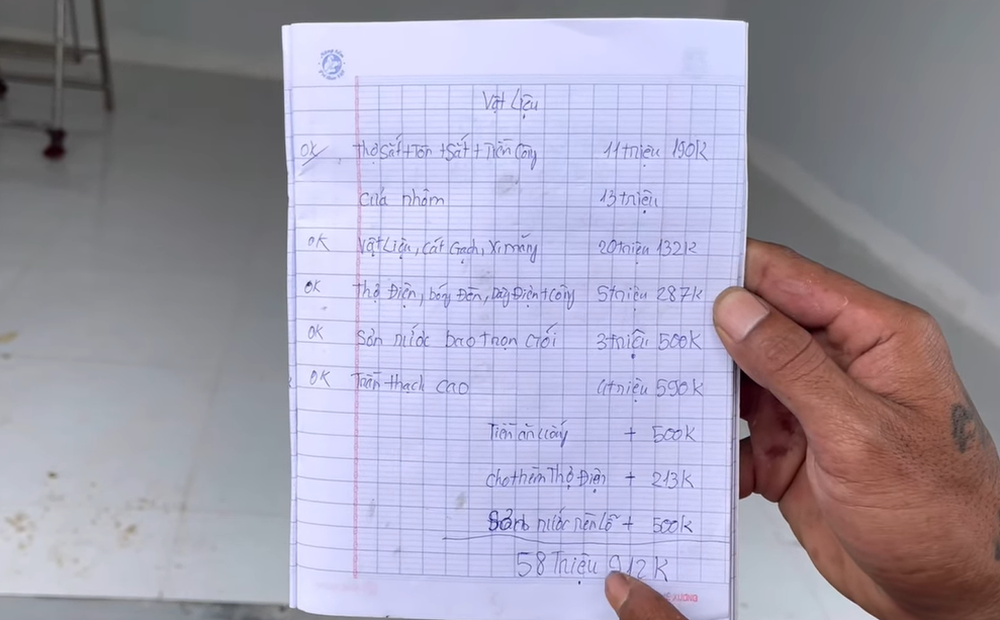 Vật Liệu
OK Thợ Sắt+Tôn+Sắt+Tiền Công 11triệu 190K
Cửa nhôm 13triệu
OK Vật Liệu, Cát Gạch, Xi măng 20triệu 132K
OK Thợ Điện, bóng Đèn, Dây Điện+Công 5triệu 287K
OK Sơn nước bao trọn Gói 3triệu 500K
OK Trần thạch cao 4triệu 590K
Tiền ăn uống + 500K
cho thêm Thợ Điện + 213K
Sơn nước nên lỗ + 500K
58Triệu 912K